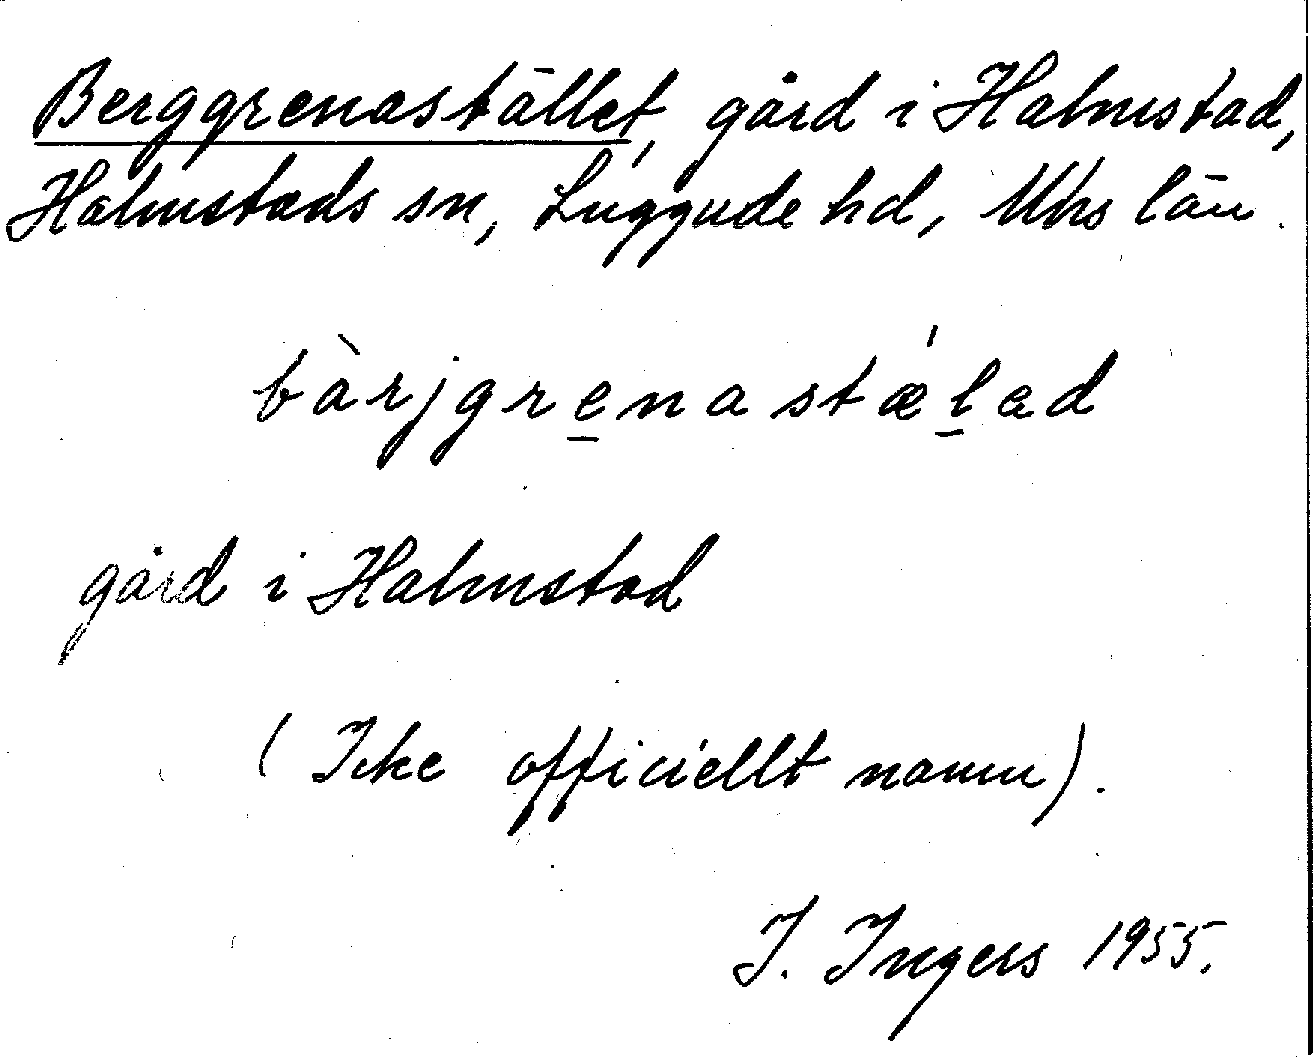 Berggrenastället, gård i Halmstad,
Halmstads sn, Luggude hd, Mhs län.
bàrjgrenastǽlad
gård i Halmstad
(Icke officiellt namn).
I. Ingers 1955.